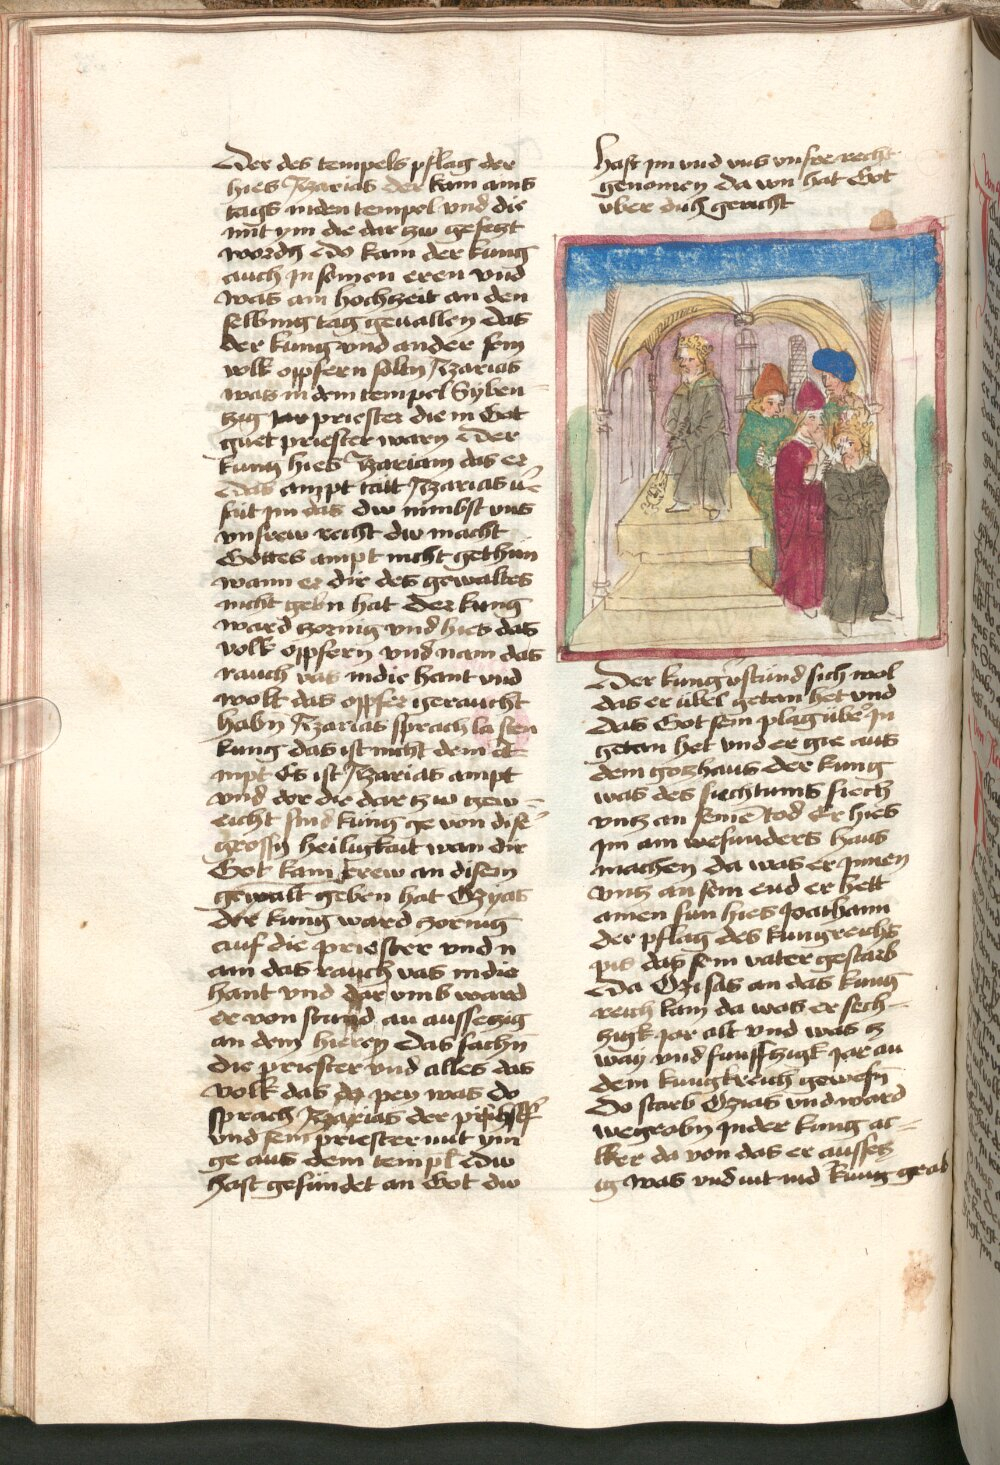 Der des tempels pflag der
hies Azarias der kam ains
tags in den tempel und die
mit ym die dar zw gesetzt
wordn Do kam der kung
auch in seinen eren und
was ain hochzeit an den
selbing tag gevallen das
der kung und ander sein
volk oppfern soltn Azarias
was in dem tempel Syben
tzig Jar priester die in Got
guet priester warn Der
kung hies Azariam das er
das ampt tatt Azarias
sait im das dw nimbst uns
unsrew recht dw macht
Gottes ampt nicht gethun
wann er dir des gewaltes
nicht gebn hat Der kung
ward zornig und hies das
volk oppfern und nam das
rauch vas in die hant und
wolt das oppfer geraucht
habn Azarias sprach la sten
kung das ist nicht dein
mpt Es ist Azarias ampt
und der die dar zw gew-
eicht sind kung ge von dise
grossn heiligkait wan dir
Got kain erew an disem
gewalt geben hat Ozyas
der kung ward zornig
auf die priester und n
am das rauch vas in die
hant und dar umb ward
er von stund an aussetzig
an dem hieren Das sachn
die priester und alles das
volk das do pey was do
sprach Azarias der
und sein priester mit ym
ge aus dem templ Dw
hast gesundet an Got dw
hast im und uns unser recht
genomen da von hat Got
uber dich gericht
Der kung verstund sich wol
das er ubel getan het und
das Got sein plag uber in
getan het und er gie aus
dem gotzhaus der kung
was des siechtums siech
untz an seinen tod Er hies
im ain wesunders haus
machen da was er innen
untz an sein end er hett
ainen sun hies Joathann
der pflag des kungreichs
pis das sein vater gestarb
Da Ozisas an das kung
reich kam da was er sech-
zigk jar alt und was z
way und funffzigk jar an
dem kungkreich gewesn
Do starb Ozias und ward
wegrabn in der kung ac-
ker da von das er aussetz
ig was und nit in d kung grab